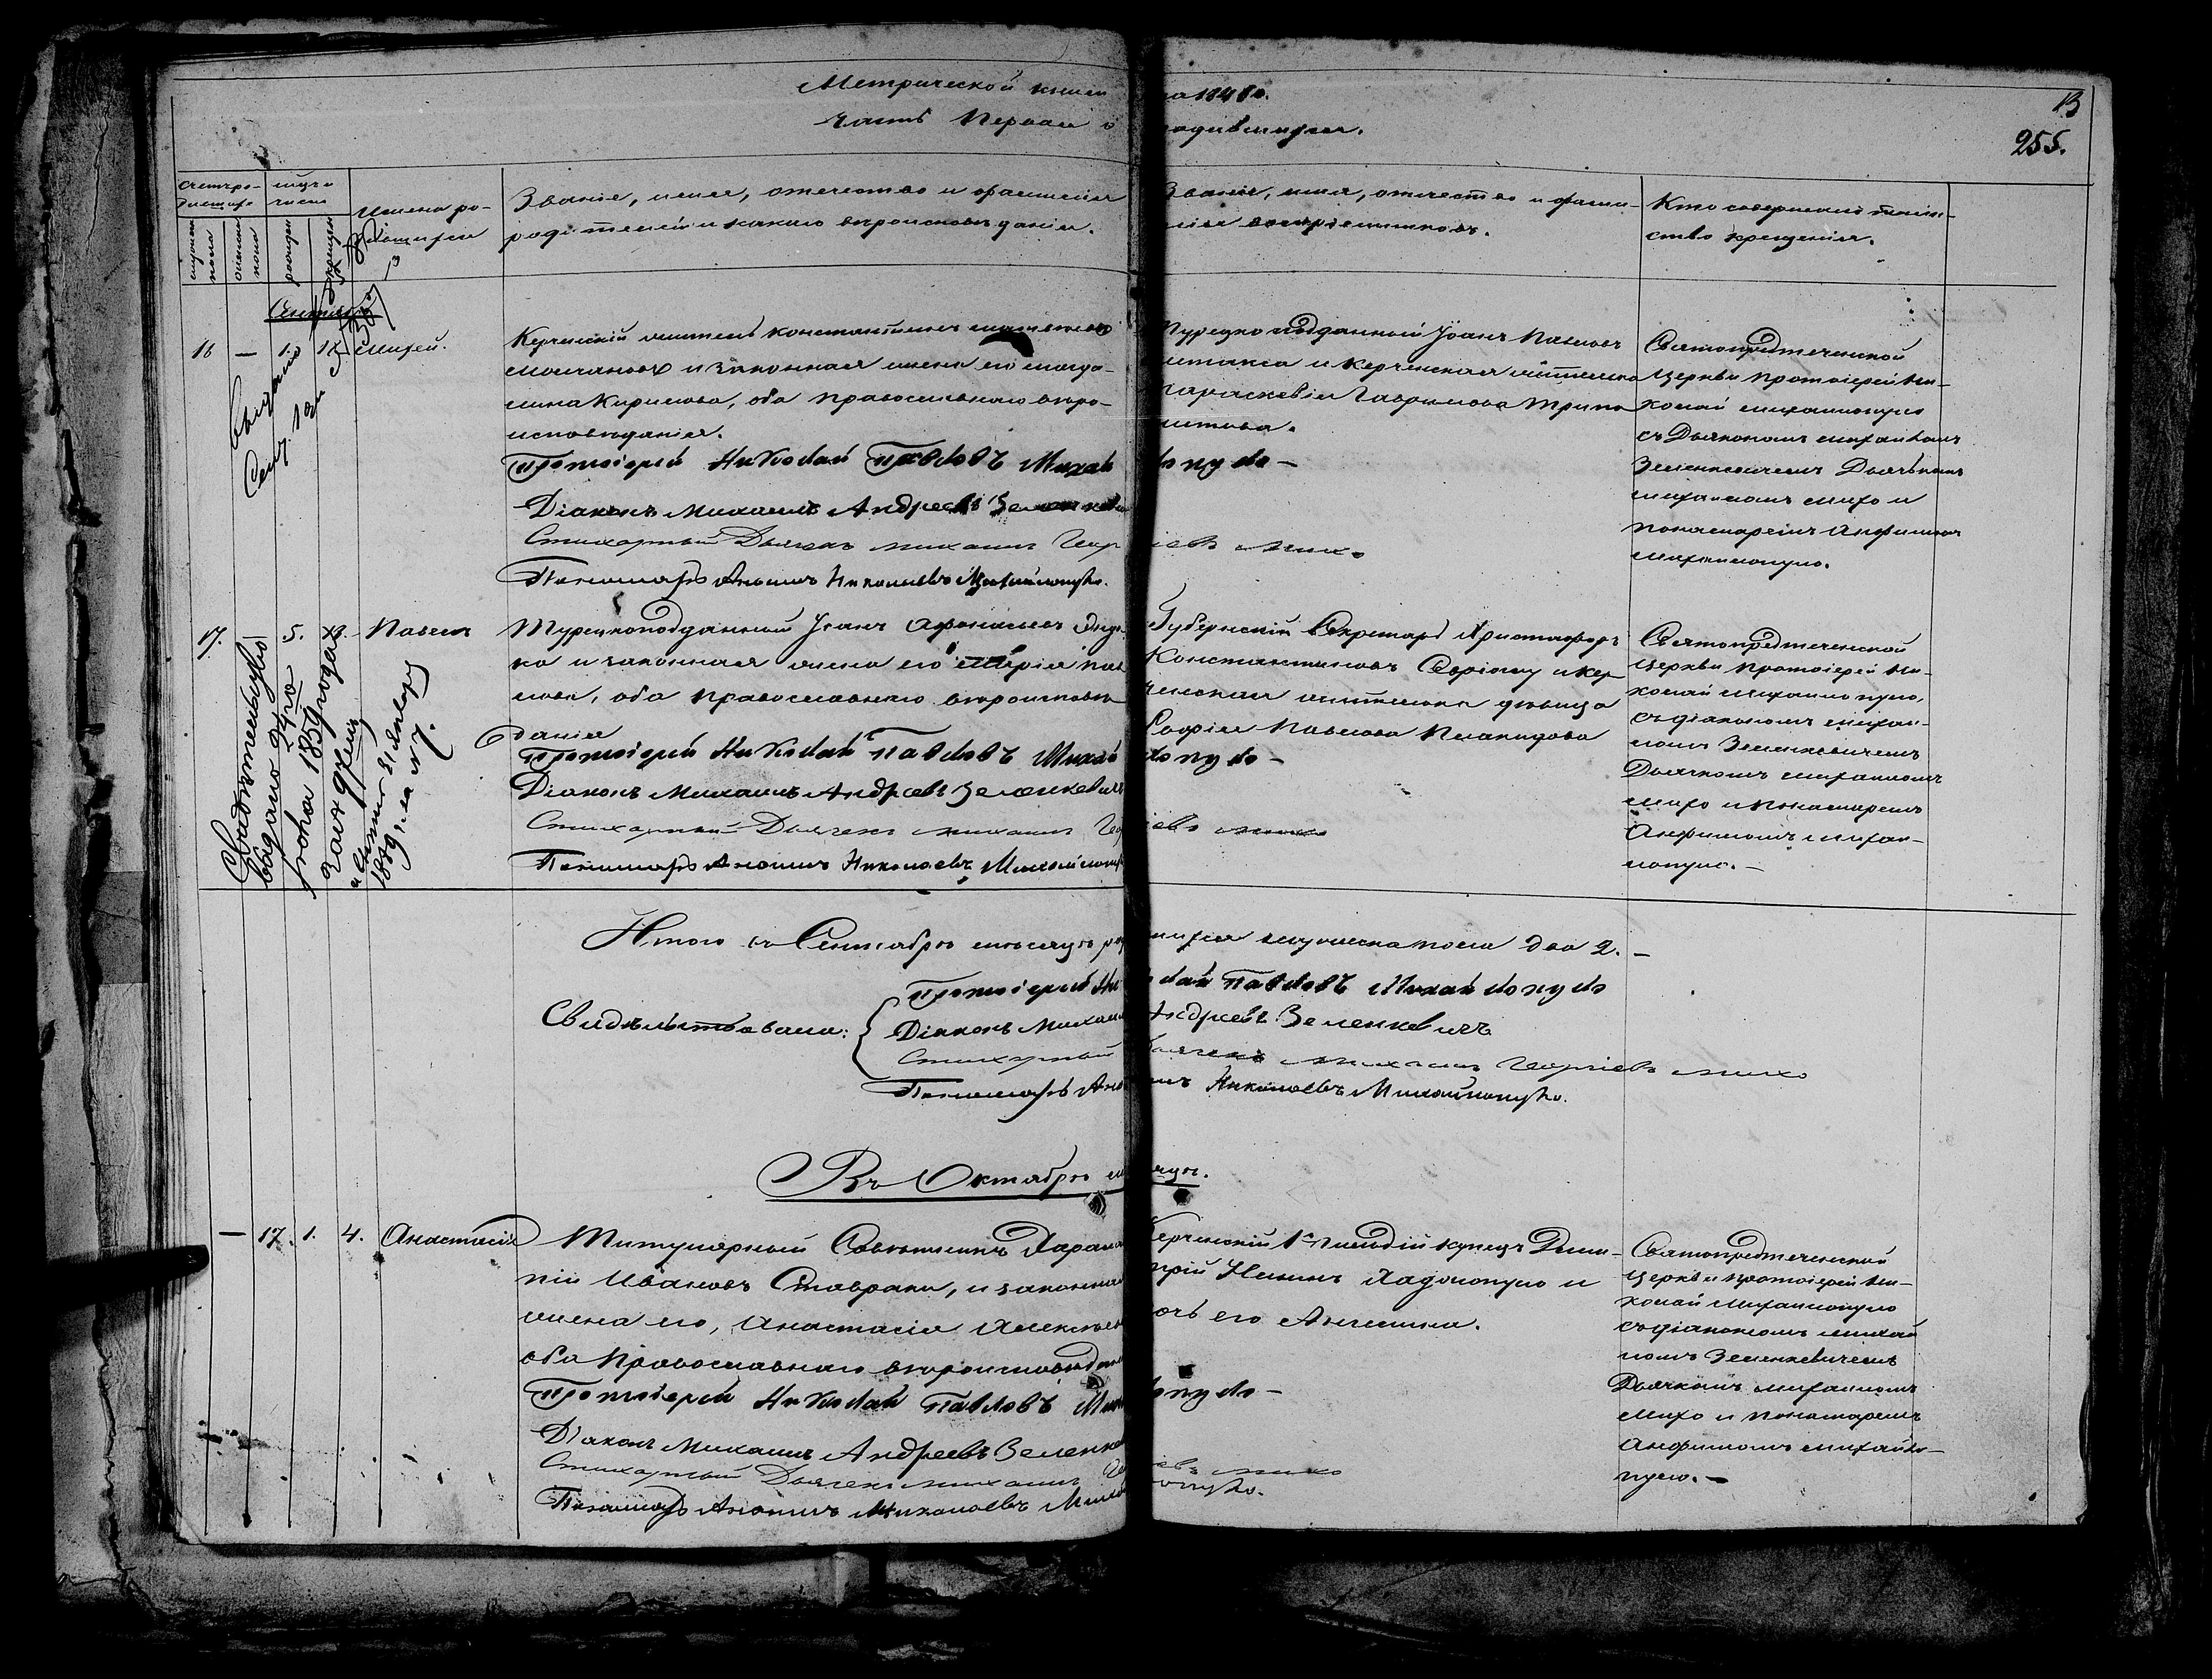 Метрической книги на 1848 г.
Часть Первая о родившихся.
13
255.
Счетъ ро-
дившихся
мужеска пола
женска пола
Мѣсяцъ и число
рожденія
крещенія
Имена ро-
дившихся
Званіе, имя, отчество и фамилія
родителей и какого вѣроисповѣданія.
Званіе, имя, отчество и фами-
лія воспріемниковъ.
Кто совершалъ таин-
ство крещенія.
Сентябрь
16 — 1.
Керченскій житель Константинъ
и законная жена его Магда-
лина Кирилова, оба православнаго вѣро-
исповѣданія.
Протоіерей Николай Павловъ Михайлопуло —
Діаконъ Михаилъ Андреевъ Зеленкевичъ
Стихарный Дьячекъ Михаилъ Георгіевъ Михо
Пономарь Анфимъ Николаевъ Михайлопуло.
Турецко подданный Іоанъ Павловъ
и Керченская жителька
Параскевія Гаврилова
Святопредтеченской
Церкви протоіерей Ни-
колай Михаилопуло
съ Дьякономъ Михаиломъ
Зеленкевичемъ Дьячкомъ
Михаиломъ Михо и
пономаремъ Анфимомъ
Михаилопуло.
17. 5. Павелъ
Турецкоподданный Іоанъ Афонасьевъ
и законная жена его Марія Пав-
лова, оба православнаго вѣроисповѣ-
данія
Протоіерей Николай Павловъ Михайлопуло —
Діаконъ Михаилъ Андреевъ Зеленкевичъ
Стихарный Дьячекъ Михаилъ Георгіевъ Михо
Пономарь Анфимъ Николаевъ Михайлопуло
Губернскій Секретарь Христофоръ
Константиновъ и Кер-
ченская жителька дѣвица
Софія Павлова
Святопредтеченской
Церкви протоіерей Ни-
колай Михаилопуло,
съ діакономъ Михаи-
ломъ Зеленкевичемъ
Дьячкомъ Михаиломъ
Михо и пономаремъ
Анфимомъ Михаи-
лопуло. —
Свидѣтельство
выдано
1859 года
за № 7.
Итого въ Сентябрѣ мѣсяцѣ родившихся мужеска пола два 2. —
Свидѣтельствовали:
Протоіерей Николай Павловъ Михайлопуло
Діаконъ Михаилъ Андреевъ Зеленкевичъ
Стихарный Дьячекъ Михаилъ Георгіевъ Михо
Пономарь Анфимъ Николаевъ Михайлопуло.
Въ Октябрѣ мѣсяцѣ.
— 17. 1. 4. Анастасія
Титулярный Совѣтникъ Харлам-
пій Ивановъ Ставраки, и законная
жена его, Анастасія Алексѣева
оба Православнаго вѣроисповѣданія
Протоіерей Николай Павловъ Михайлопуло —
Діаконъ Михаилъ Андреевъ Зеленкевичъ
Стихарный Дьячекъ Михаилъ Георгіевъ Михо
Пономарь Анфимъ Николаевъ Михайлопуло.
Керченскій 1й гильдіи купецъ Дми-
трій Хаджопуло и
дочь его Ангелина.
Святопредтеченской
Церкви протоіерей Ни-
колай Михаилопуло
съ діакономъ Михаи-
ломъ Зеленкевичемъ
Дьячкомъ Михаиломъ
Михо и пономаремъ
Анфимомъ Михайло-
пуло. —